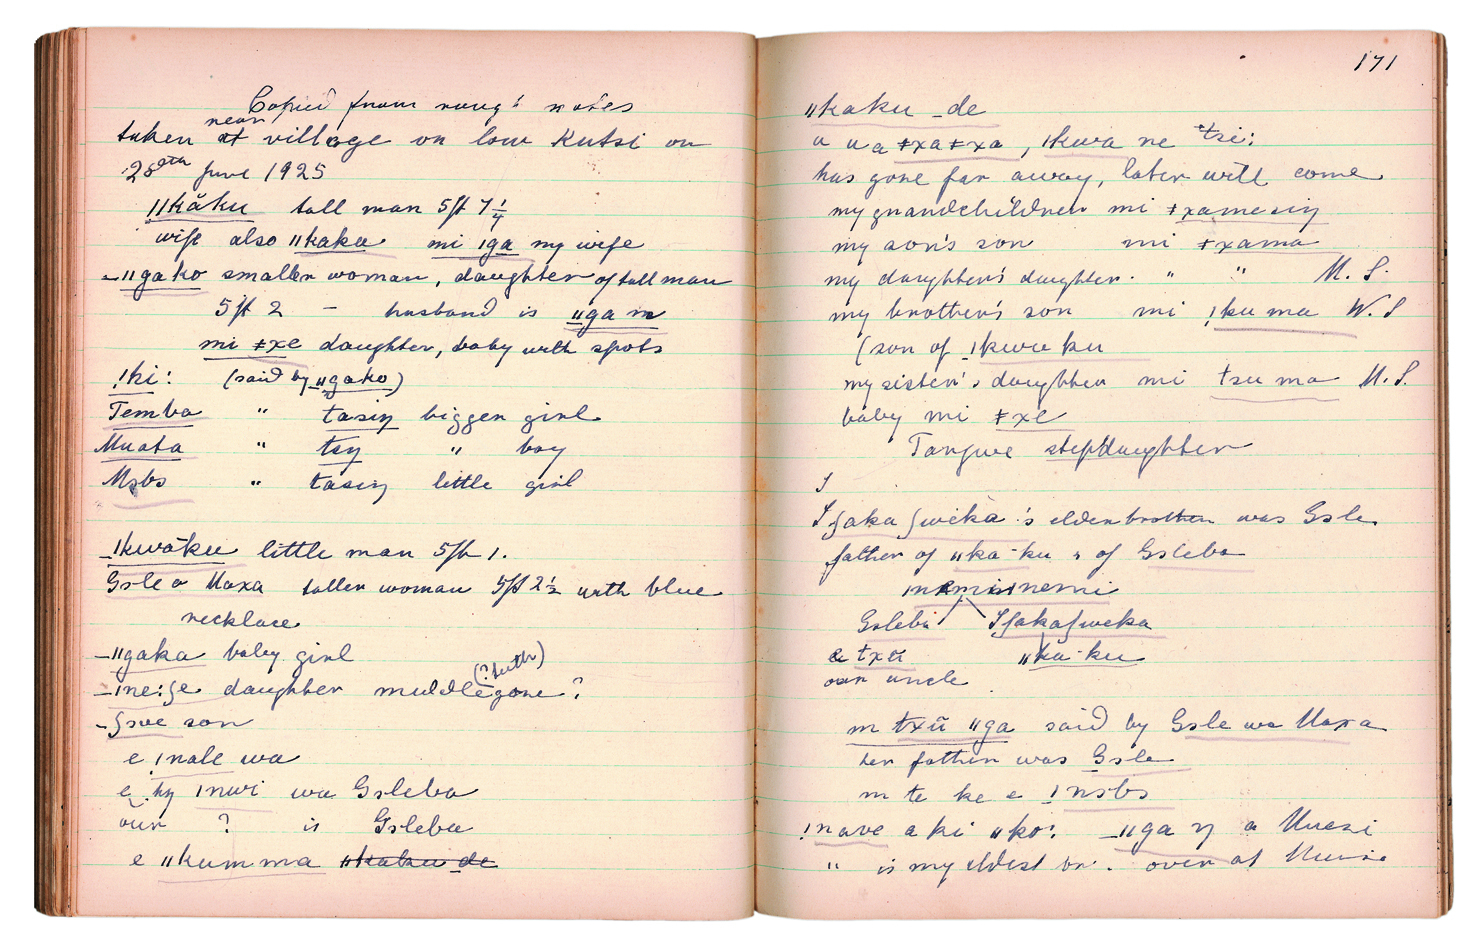 Copied from rough notes
taken near at village on low Kutsi on
28th June 1925
ǁkăku tall man 5ft 7¼
wife also ǁkaka mi ꞁga my wife
_ǁgako smaller woman, daughter of tall man
5ft 2 – husband is ǁga m
mi ǂxe daughter, baby with spots
!ki: (said by ǁgako)
Temba " tasiŋ bigger girl
Muata " tsŋ " boy
" tasiŋ little girl
_ꞁkwāku little man 5ft 1.
Gɜle a Uaxa taller woman 5ft 2½ with blue
necklace
_ǁgaka baby girl
_ꞁne:ʃe daughter middle gone ? (? tuth)
_ʃwe son
e !nale wa
e hŋ ꞁnwi wa Gɜleba
our ? is Gɜleba
e ǁkumma ǁkaku de
171
ǁkaku _de
u u a ǂxaǂxa, ꞁkwa ne tsi:
has gone far away, later will come
my grandchildren mi ǂxamesiŋ
my son's son mi ǂxama
my daughter's daughter. " " M. S.
my brother's son mi !kuma W. S
(son of ꞁkwaku
my sister's daughter mi tsuma M. S.
baby mi ǂxe
Tongwe stepdaughter
I
Iʃakaʃweka's elder brother was Gɜle
father of ǁka-ku & of Gɜleba
ꞁnemi
Gɜleba Iʃakaʃweka
e txū ǁka-ku
our uncle
m txū ǁga said by Gɜle wa Uaxa
her father was Gɜle
m te ke e !nɜbɜ
!nave a ki ǁko: _ǁga ŋ a
" is my eldest br. over at